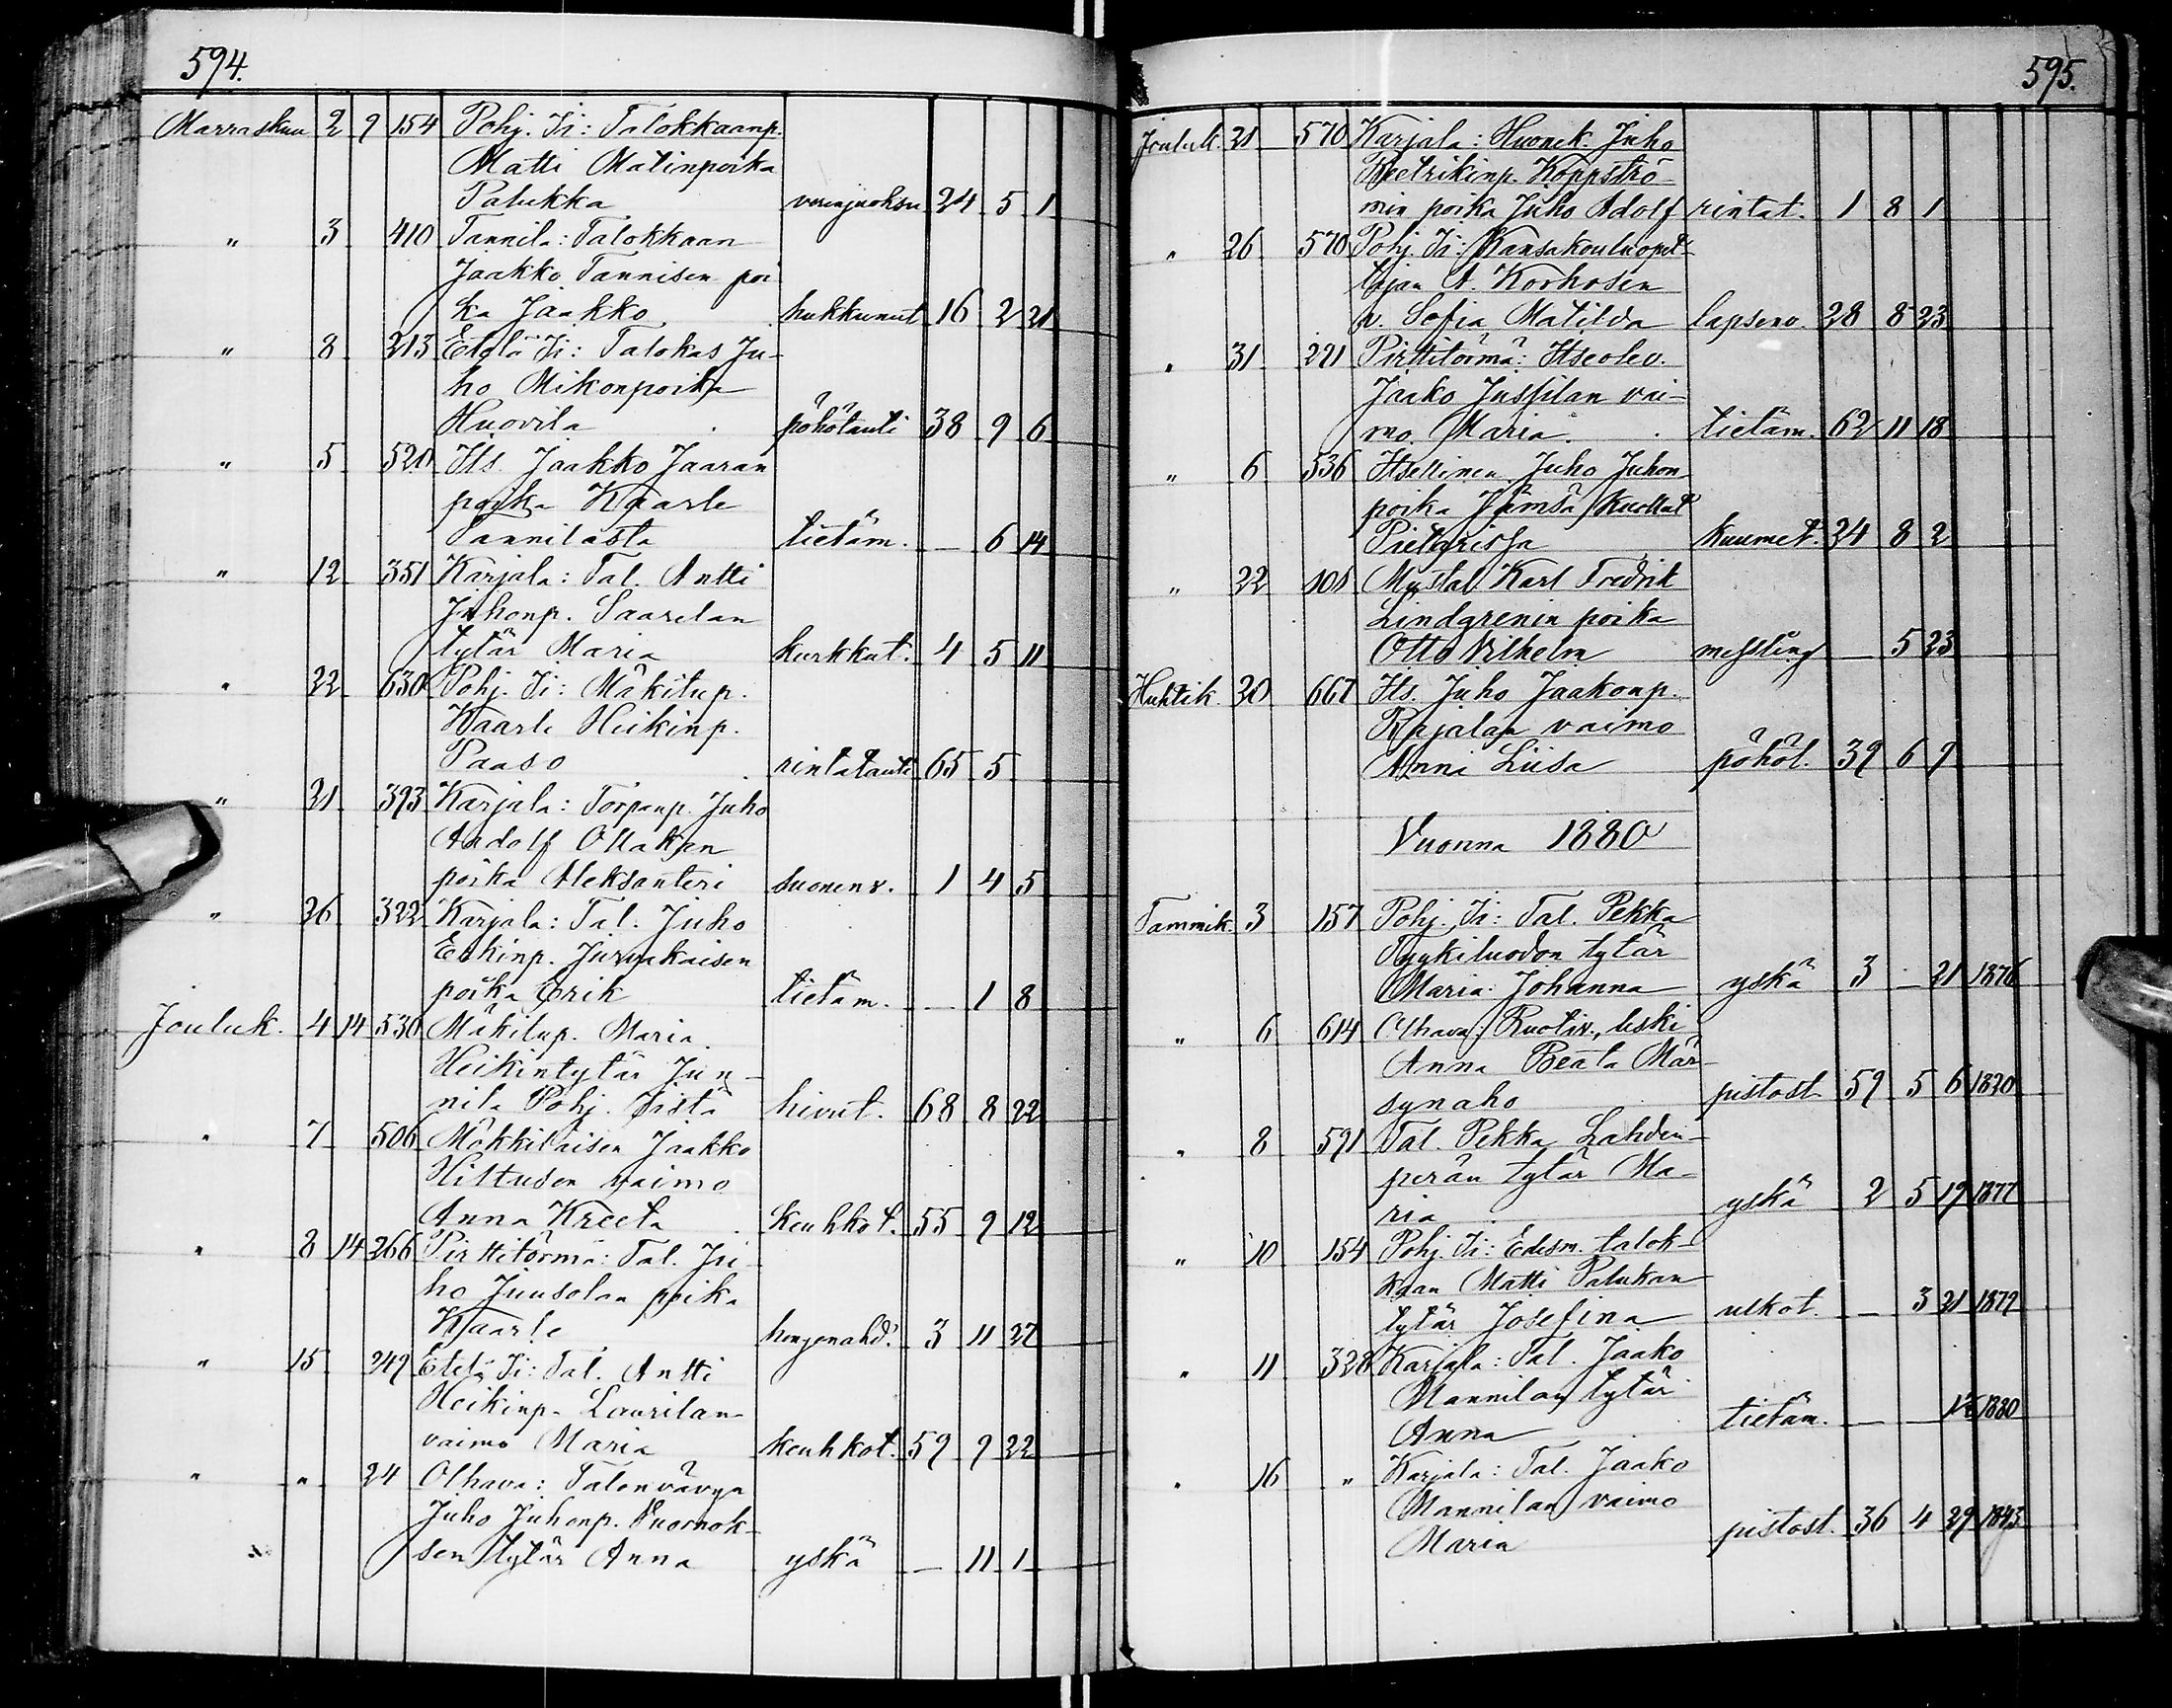 594.
Marraskuu 2 9 154 Pohj. Ii: Talokkaanp.
Matti Matinpoika
Palukka verenjuoksu 24 5 1
" 3 410 Tannila: Talokkaan
Jaakko Tannisen poi
ka Jaakko hukkunut 16 2 21
" 8 213 Etelä Ii: Talokas Ju-
ho Mikonpoika
Huovila pöhötauti 38 9 6
" 5 520 Its. Jaakko Jaaran
poika Kaarle
Tannilasta tietäm. — 6 14
" 12 351 Karjala: Tal. Antti
Juhonp. Saarelan
tytär Maria kurkkut. 4 5 11
" 22 630 Pohj. Ii: Mäkitup.
Kaarle Heikinp.
Paaso rintatauti 65 5
" 21 393 Karjala: Torpanp. Juho
Andolf Ollakan
poika Aleksanteri suonenv. 1 4 5
" 26 322 Karjala: Tal. Juho
Erkinp. Jurvakaisen
poika Erik tietäm. — 1 8
Jouluk. 4 14 530 Mäkitup. Maria
Heikintytär Jun-
nila Pohj. Iistä hivut. 68 8 22
" 7 506 Mökkiläisen Jaakko
Hiltusen vaimo
Anna Kreeta keuhkot. 55 9 12
" 8 14 266 Pirttitörmä: Tal. Ju-
ho Juusolan poika
Kaarle hengenahd. 3 11 27
" 15 249 Etelä Ii: Tal. Antti
Heikinp. Laurilan
vaimo Maria keuhkot. 59 9 22
" " 24 Olhava: Talonvävyn
Juho Juhonp. Vuornok-
sen tytär Anna yskä — 11 1
595.
Jouluk. 21 570 Karjala: Huonek. Juho
Reetrikinp. Koppströ-
min poika Juho Adolf rintat. 1 8 1
" 26 570 Pohj. Ii: Kansakouluopet-
tajan A. Korhosen
v. Sofia Matilda lapsenv. 28 8 23
" 31 221 Pirttitörmä: Itseolev.
Jaako Jussilan vai-
mo Maria. tietäm. 62 11 18
" 6 536 Itsellinen Juho Juhon
poika Jämsä /kuollut
Pietarissa kuumet. 24 8 2
" 22 101 Mustal. Karl Fredrik
Lindgrenin poika
Otto Vilhelm messling — 5 23
Huhtik. 20 667 Its. Juho Jaakonp.
Rajalan vaimo
Anni Liisa pöhöt. 39 6 9
Vuonna 1880
Tammik. 3 157 Pohj. Ii: Tal. Pekka
Tyykiluodon tytär
Maria Johanna yskä 3 — 21 1876
" 6 614 Olhava: Ruotiv., leski
Anna Beata Mär-
synaho pistost. 59 5 6 1820
" 8 591 Tal. Pekka Lahden-
perän tytär Ma-
ria yskä 2 5 19 1877
" 10 154 Pohj. Ii: Edesm. talok-
kaan Matti Palukan
tytär Josefina uskot. — 3 21 1879
" 11 328 Karjala: Tal. Jaako
Mannilan tytär
Anna tietäm. — — 1880
" 16 " Karjala: Tal. Jaako
Mannilan vaimo
Maria pistost. 36 4 29 1843